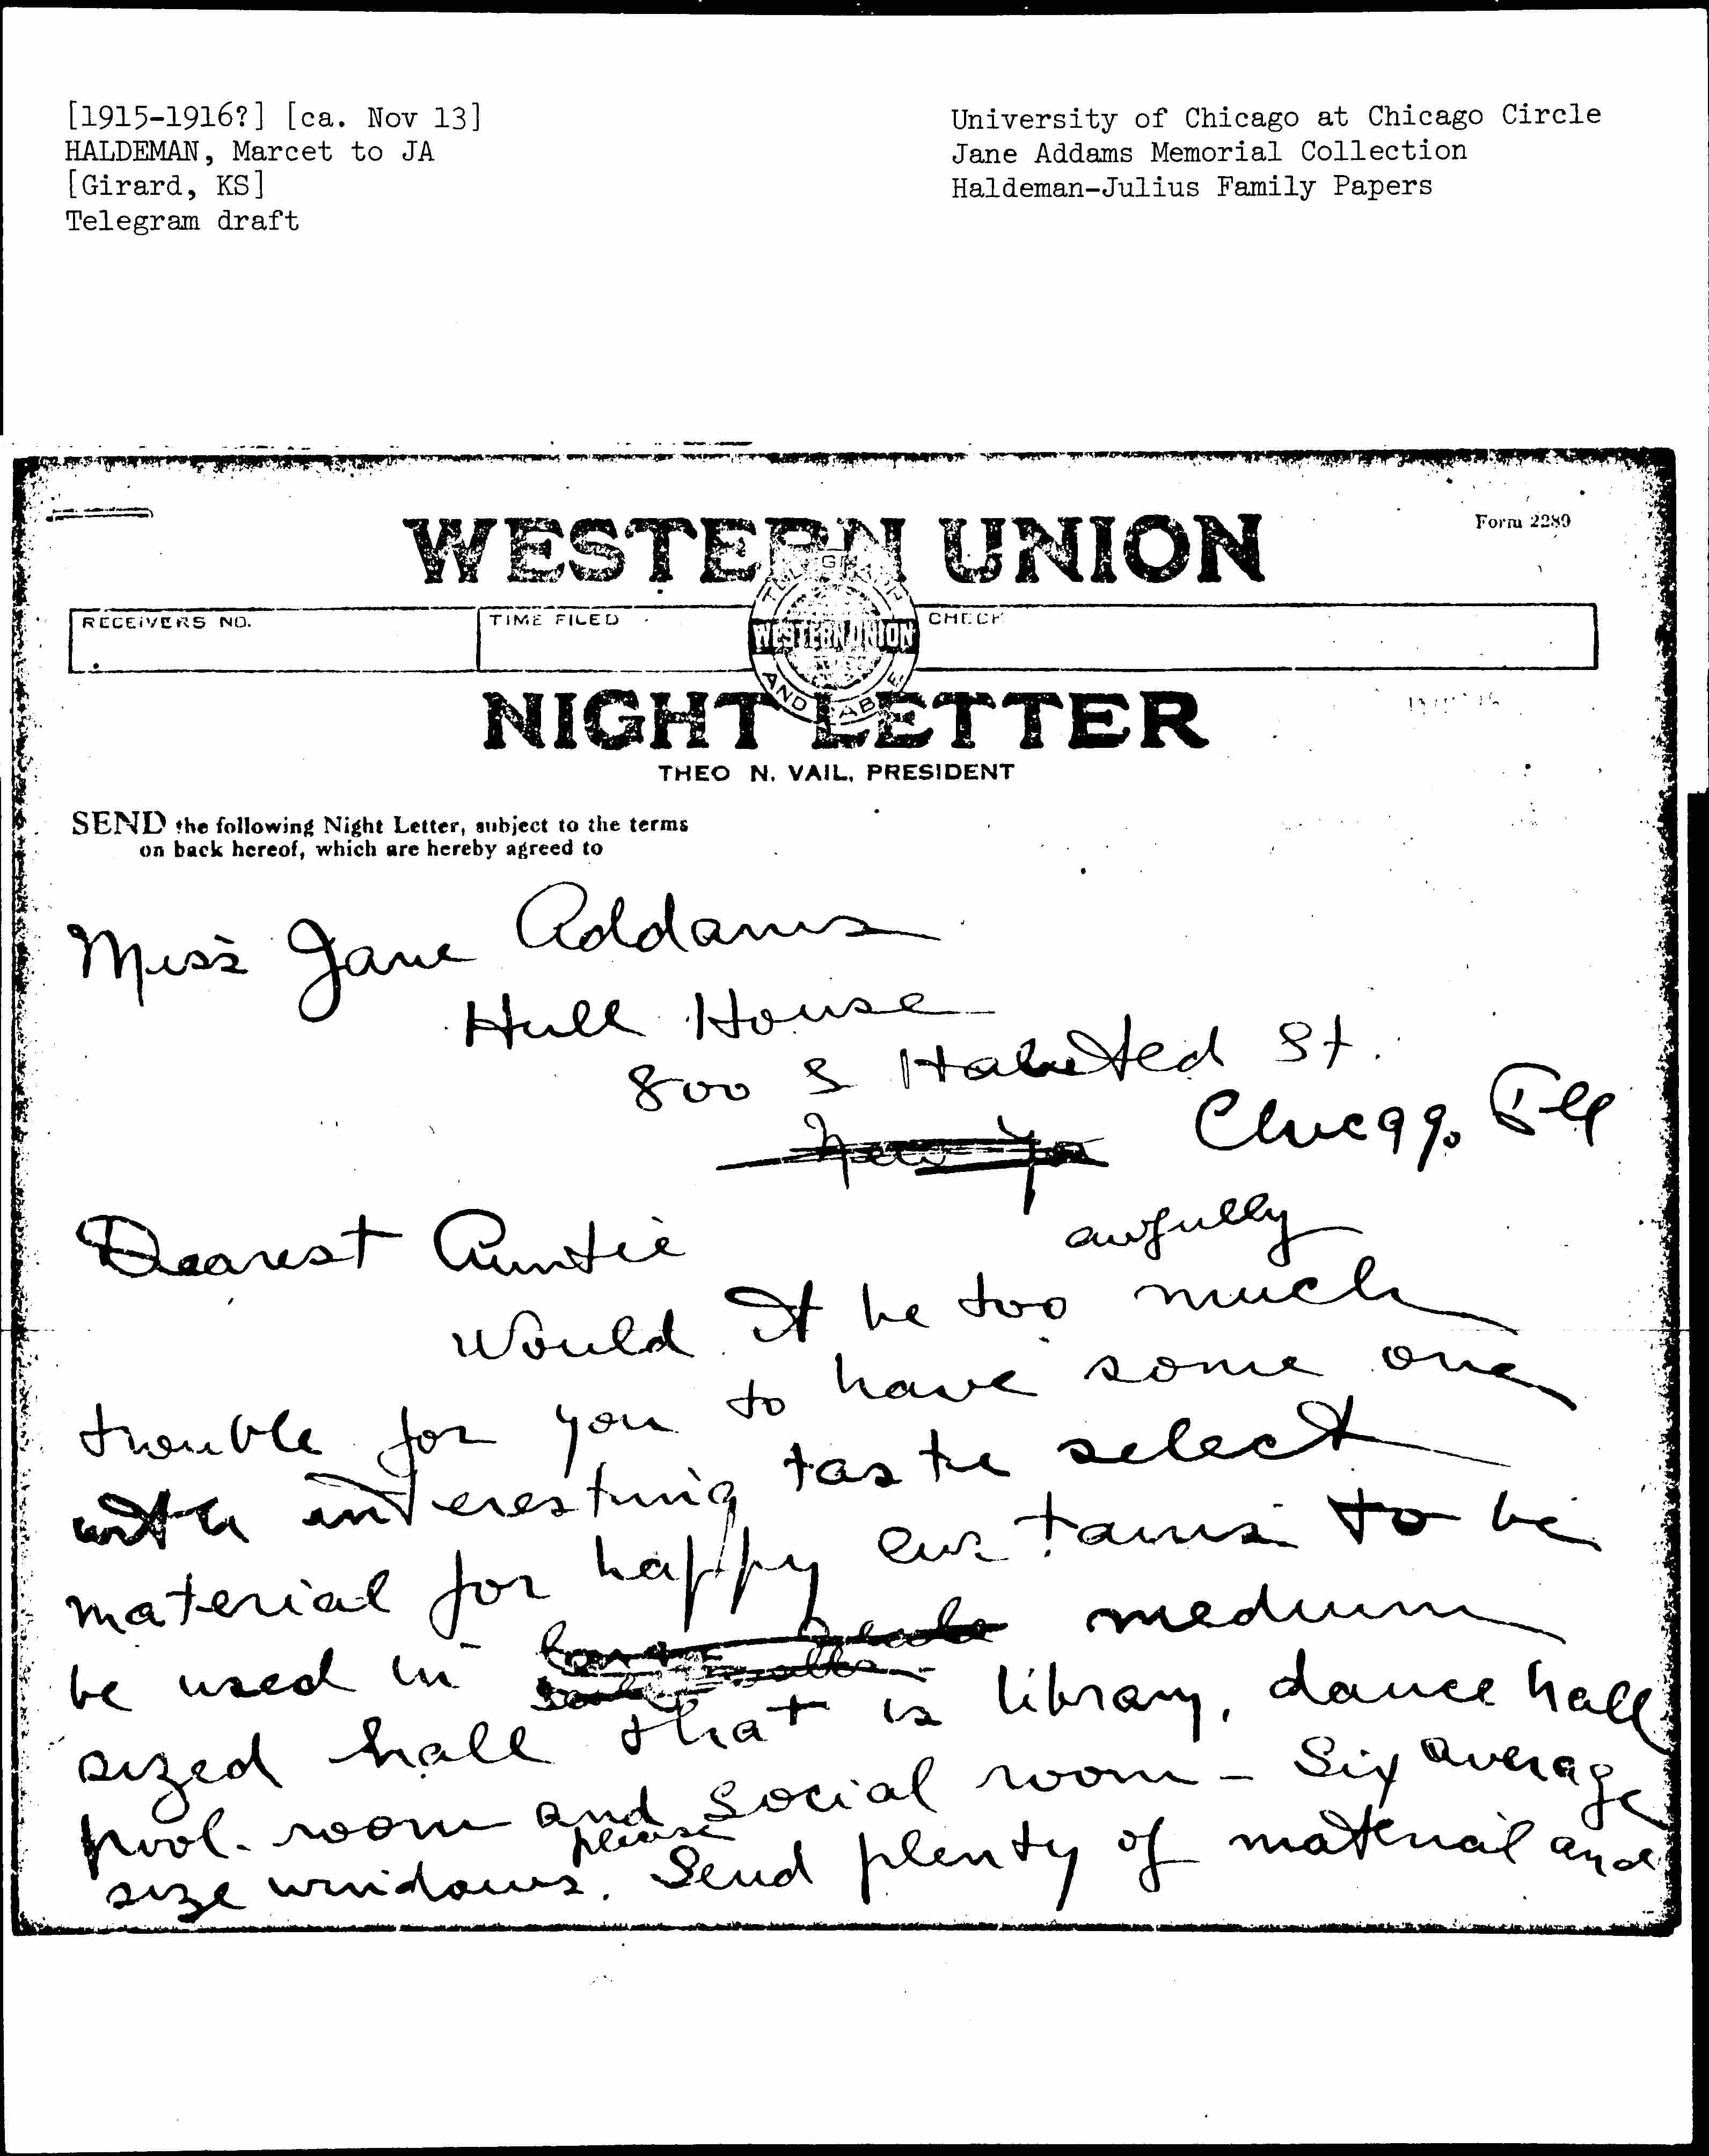 [1915-1916?] [ca. Nov 13]
HALDEMAN, Marcet to JA
[Girard, KS]
Telegram draft
University of Chicago at Chicago Circle
Jane Addams Memorial Collection
Haldeman-Julius Family Papers
WESTERN UNION
Form 2289
RECEIVERS NO.
TIME FILED
CHECK
WESTERN UNION
NIGHT LETTER
THEO N. VAIL, PRESIDENT
SEND the following Night Letter, subject to the terms
on back hereof, which are hereby agreed to
Miss Jane Addams
Hull House
800 S Halsted St.
New Yor Chicago Ill
Dearest Auntie
awfully
Would it be too much
trouble for you to have some one
with interesting taste select
material for happy curtains to be
be used in medium
sized hall that is library, dance hall
pool-room and social room - Six average
please
size windows. Send plenty of material and